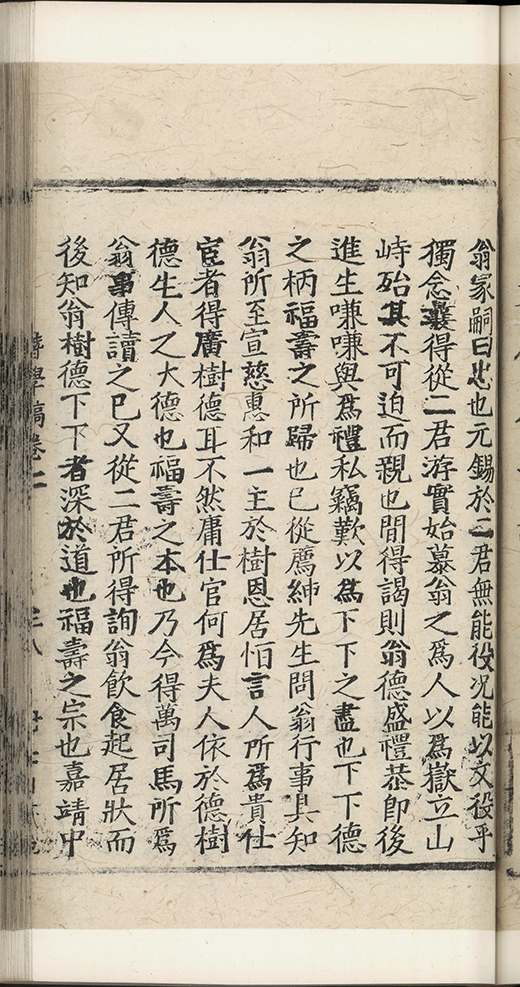 翁家嗣曰忠也元錫於二君無能役况能以文役乎
獨念曩得從二君游實始慕翁之爲人以爲嶽立山
峙殆其不可迫而親也間得謁則翁德盛禮恭即後
進生嗛嗛與爲禮私竊歎以爲下下之盡也下下德
之柄福壽之所歸也已從薦紳先生問翁行事具知
翁所至宣慈惠和一主於樹恩居怕言人所爲貴仕
宦者得廣樹德耳不然庸仕官何爲夫人依於德樹
德生人之大德也福壽之本也乃今得萬司馬所爲
翁事傳讀之巳又從二君所得詢翁飲食起居狀而
後知翁樹德下下者深於道也福壽之宗也嘉靖中
學稿卷二